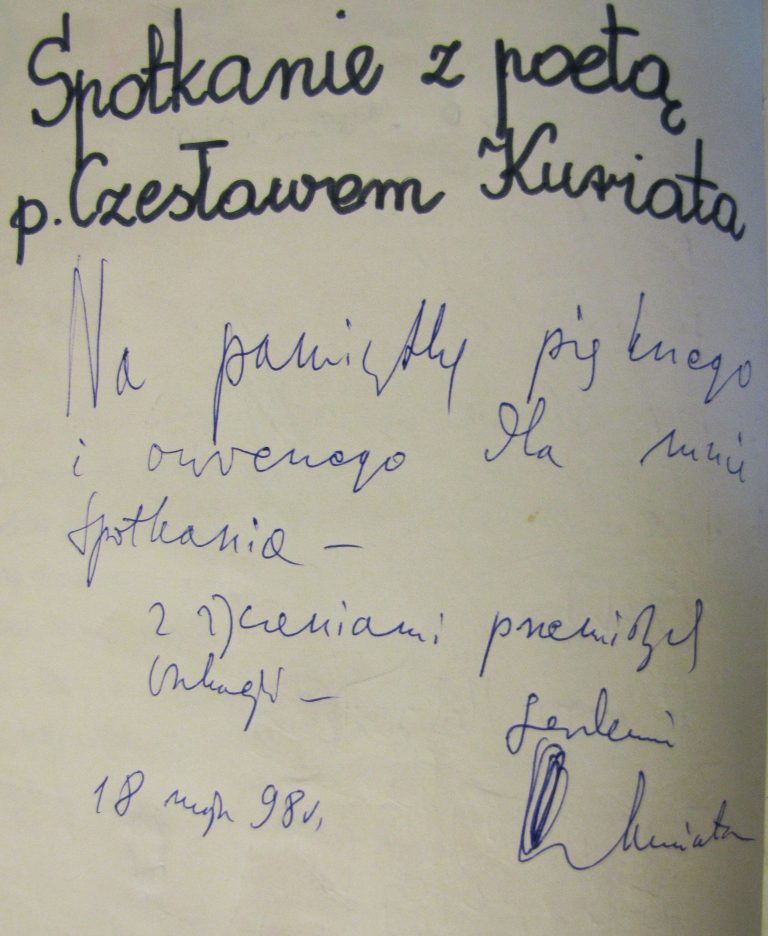 Spotkanie z poetą
p. Czesławem Kuriatą
Na pamiątkę pięknego
i owocnego dla mnie
spotkania –
z życzeniami
18 maja 98 r.
Kuriata